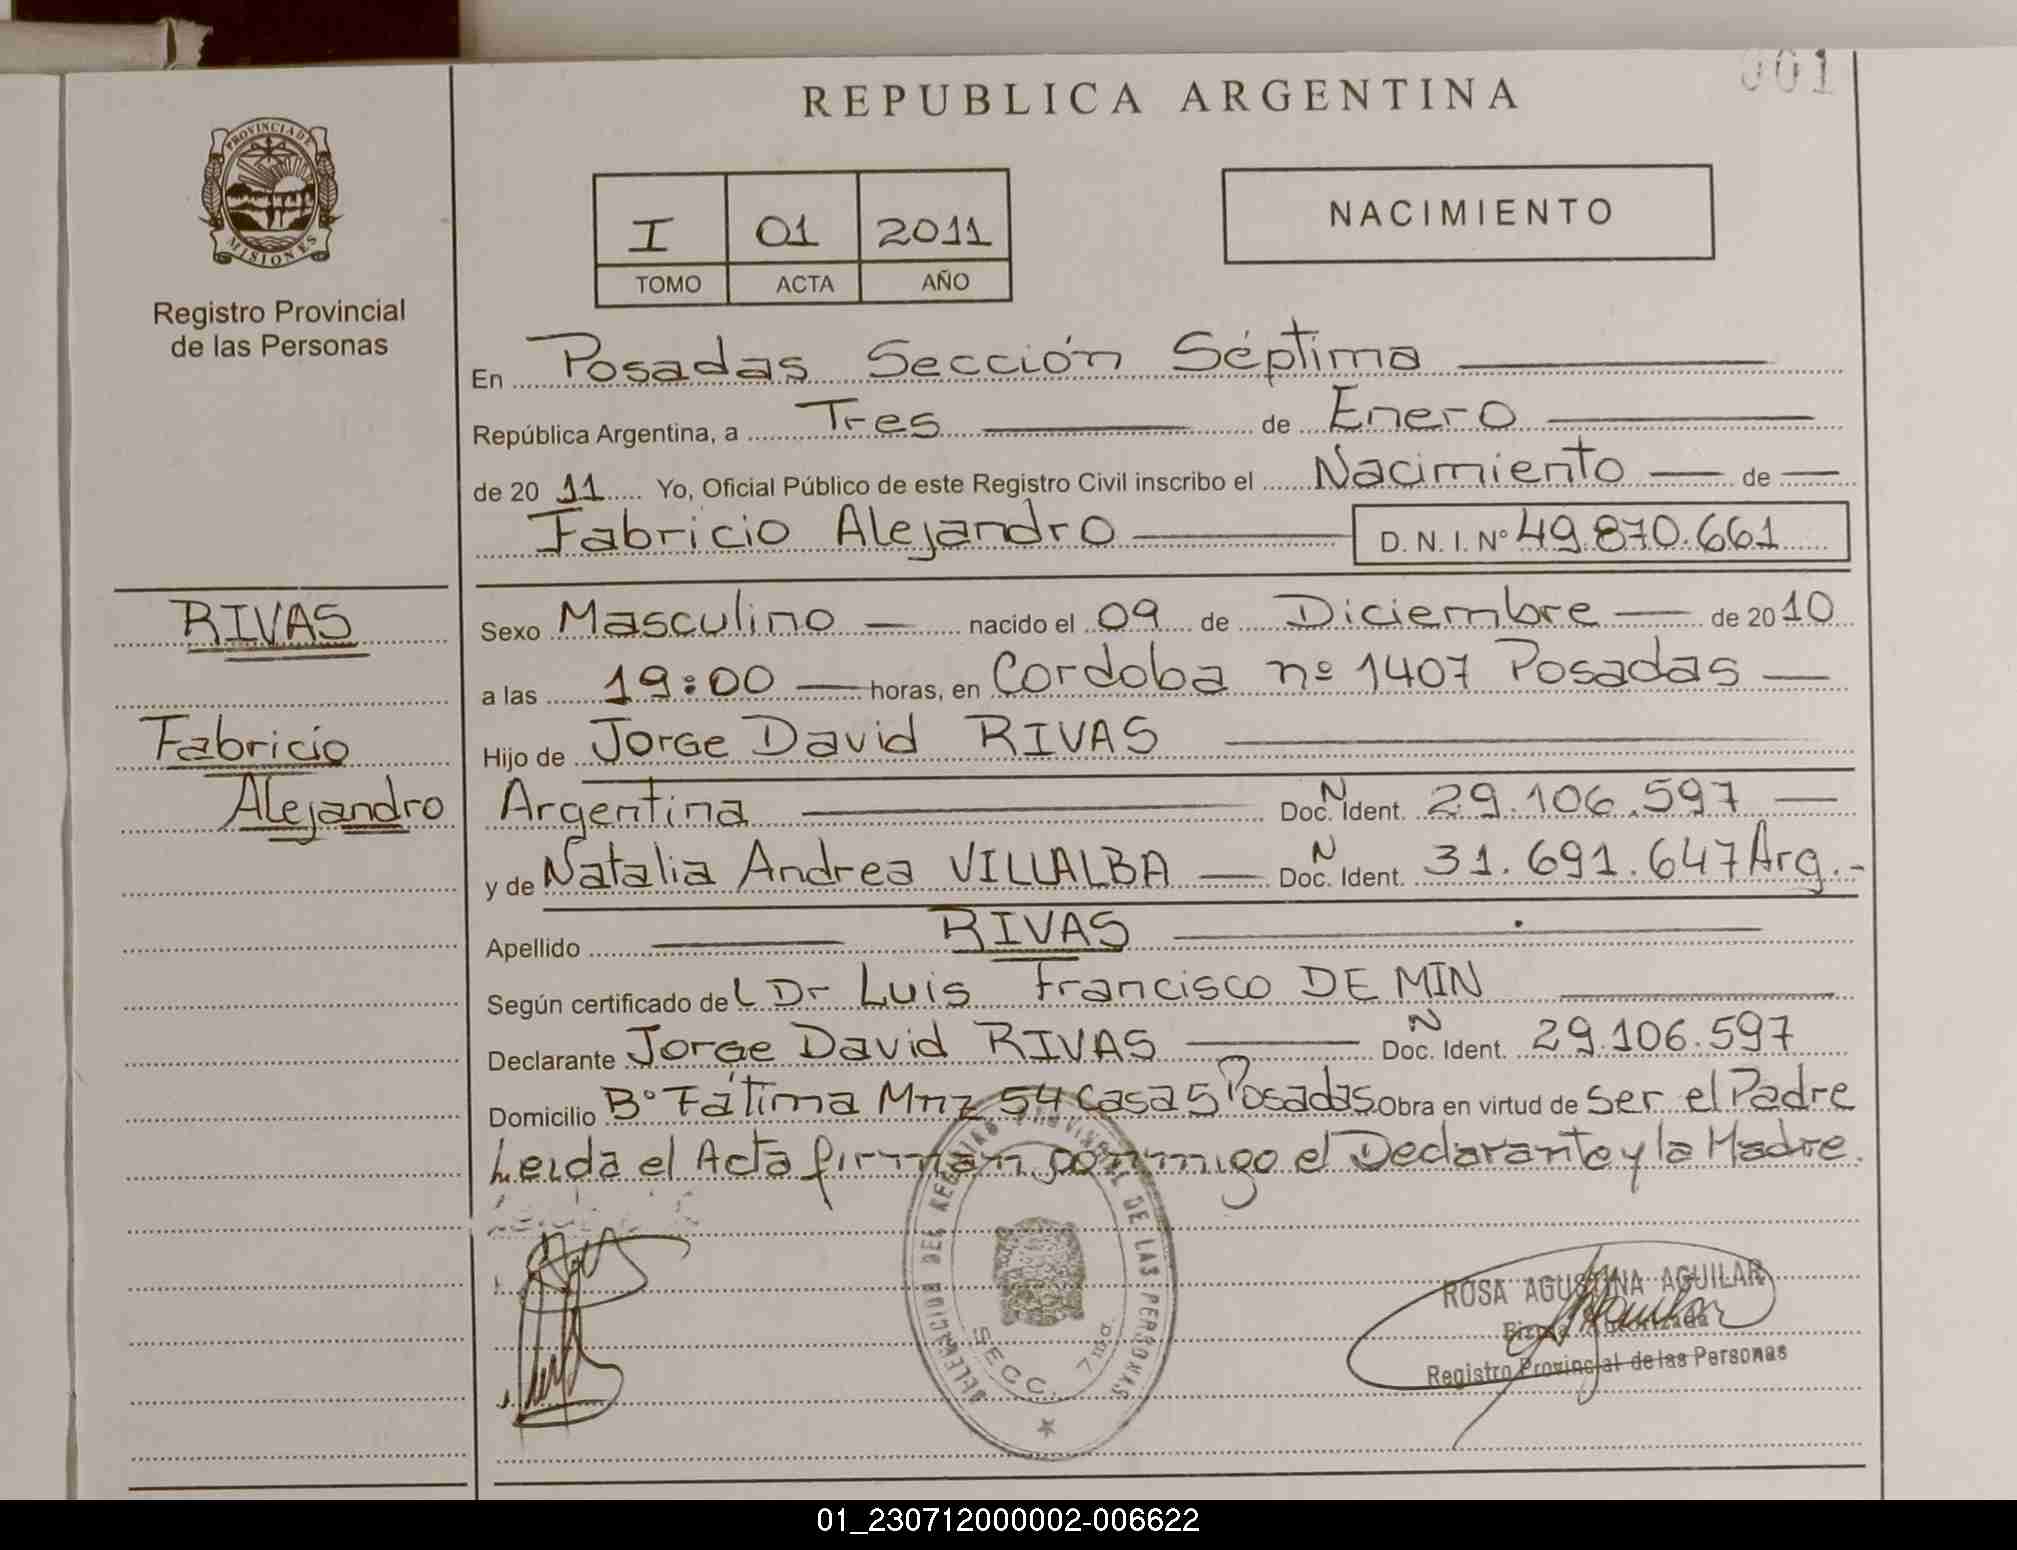 001
REPUBLICA ARGENTINA
PROVINCIA DE
MISIONES
Registro Provincial
de las Personas
I 01 2011
TOMO ACTA AÑO
NACIMIENTO
En Posadas Sección Séptima
República Argentina, a Tres de Enero
de 2011 Yo, Oficial Público de este Registro Civil inscribo el Nacimiento de
Fabricio Alejandro D.N.I. Nº 49.870.661
RIVAS
Fabricio
Alejandro
Sexo Masculino nacido el 09 de Diciembre de 2010
a las 19:00 horas, en Cordoba nº 1407 Posadas
Hijo de Jorge David RIVAS
Argentina Doc. N Ident. 29.106.597
y de Natalia Andrea VILLALBA Doc. N Ident. 31.691.647 Arg.-
Apellido RIVAS
Según certificado del Dr Luis Francisco DE MIN
Declarante Jorge David RIVAS Doc. N Ident. 29.106.597
Domicilio Bº Fátima Mnz 54 Casa 5 Posadas Obra en virtud de ser el Padre
Leida el Acta firman conmigo el Declarante y la Madre.
DE LAS PERSONAS
SECC. 7ma.
ROSA AGUSTINA AGUILAR
Firma Autorizada
Registro Provincial de las Personas
01_230712000002-006622